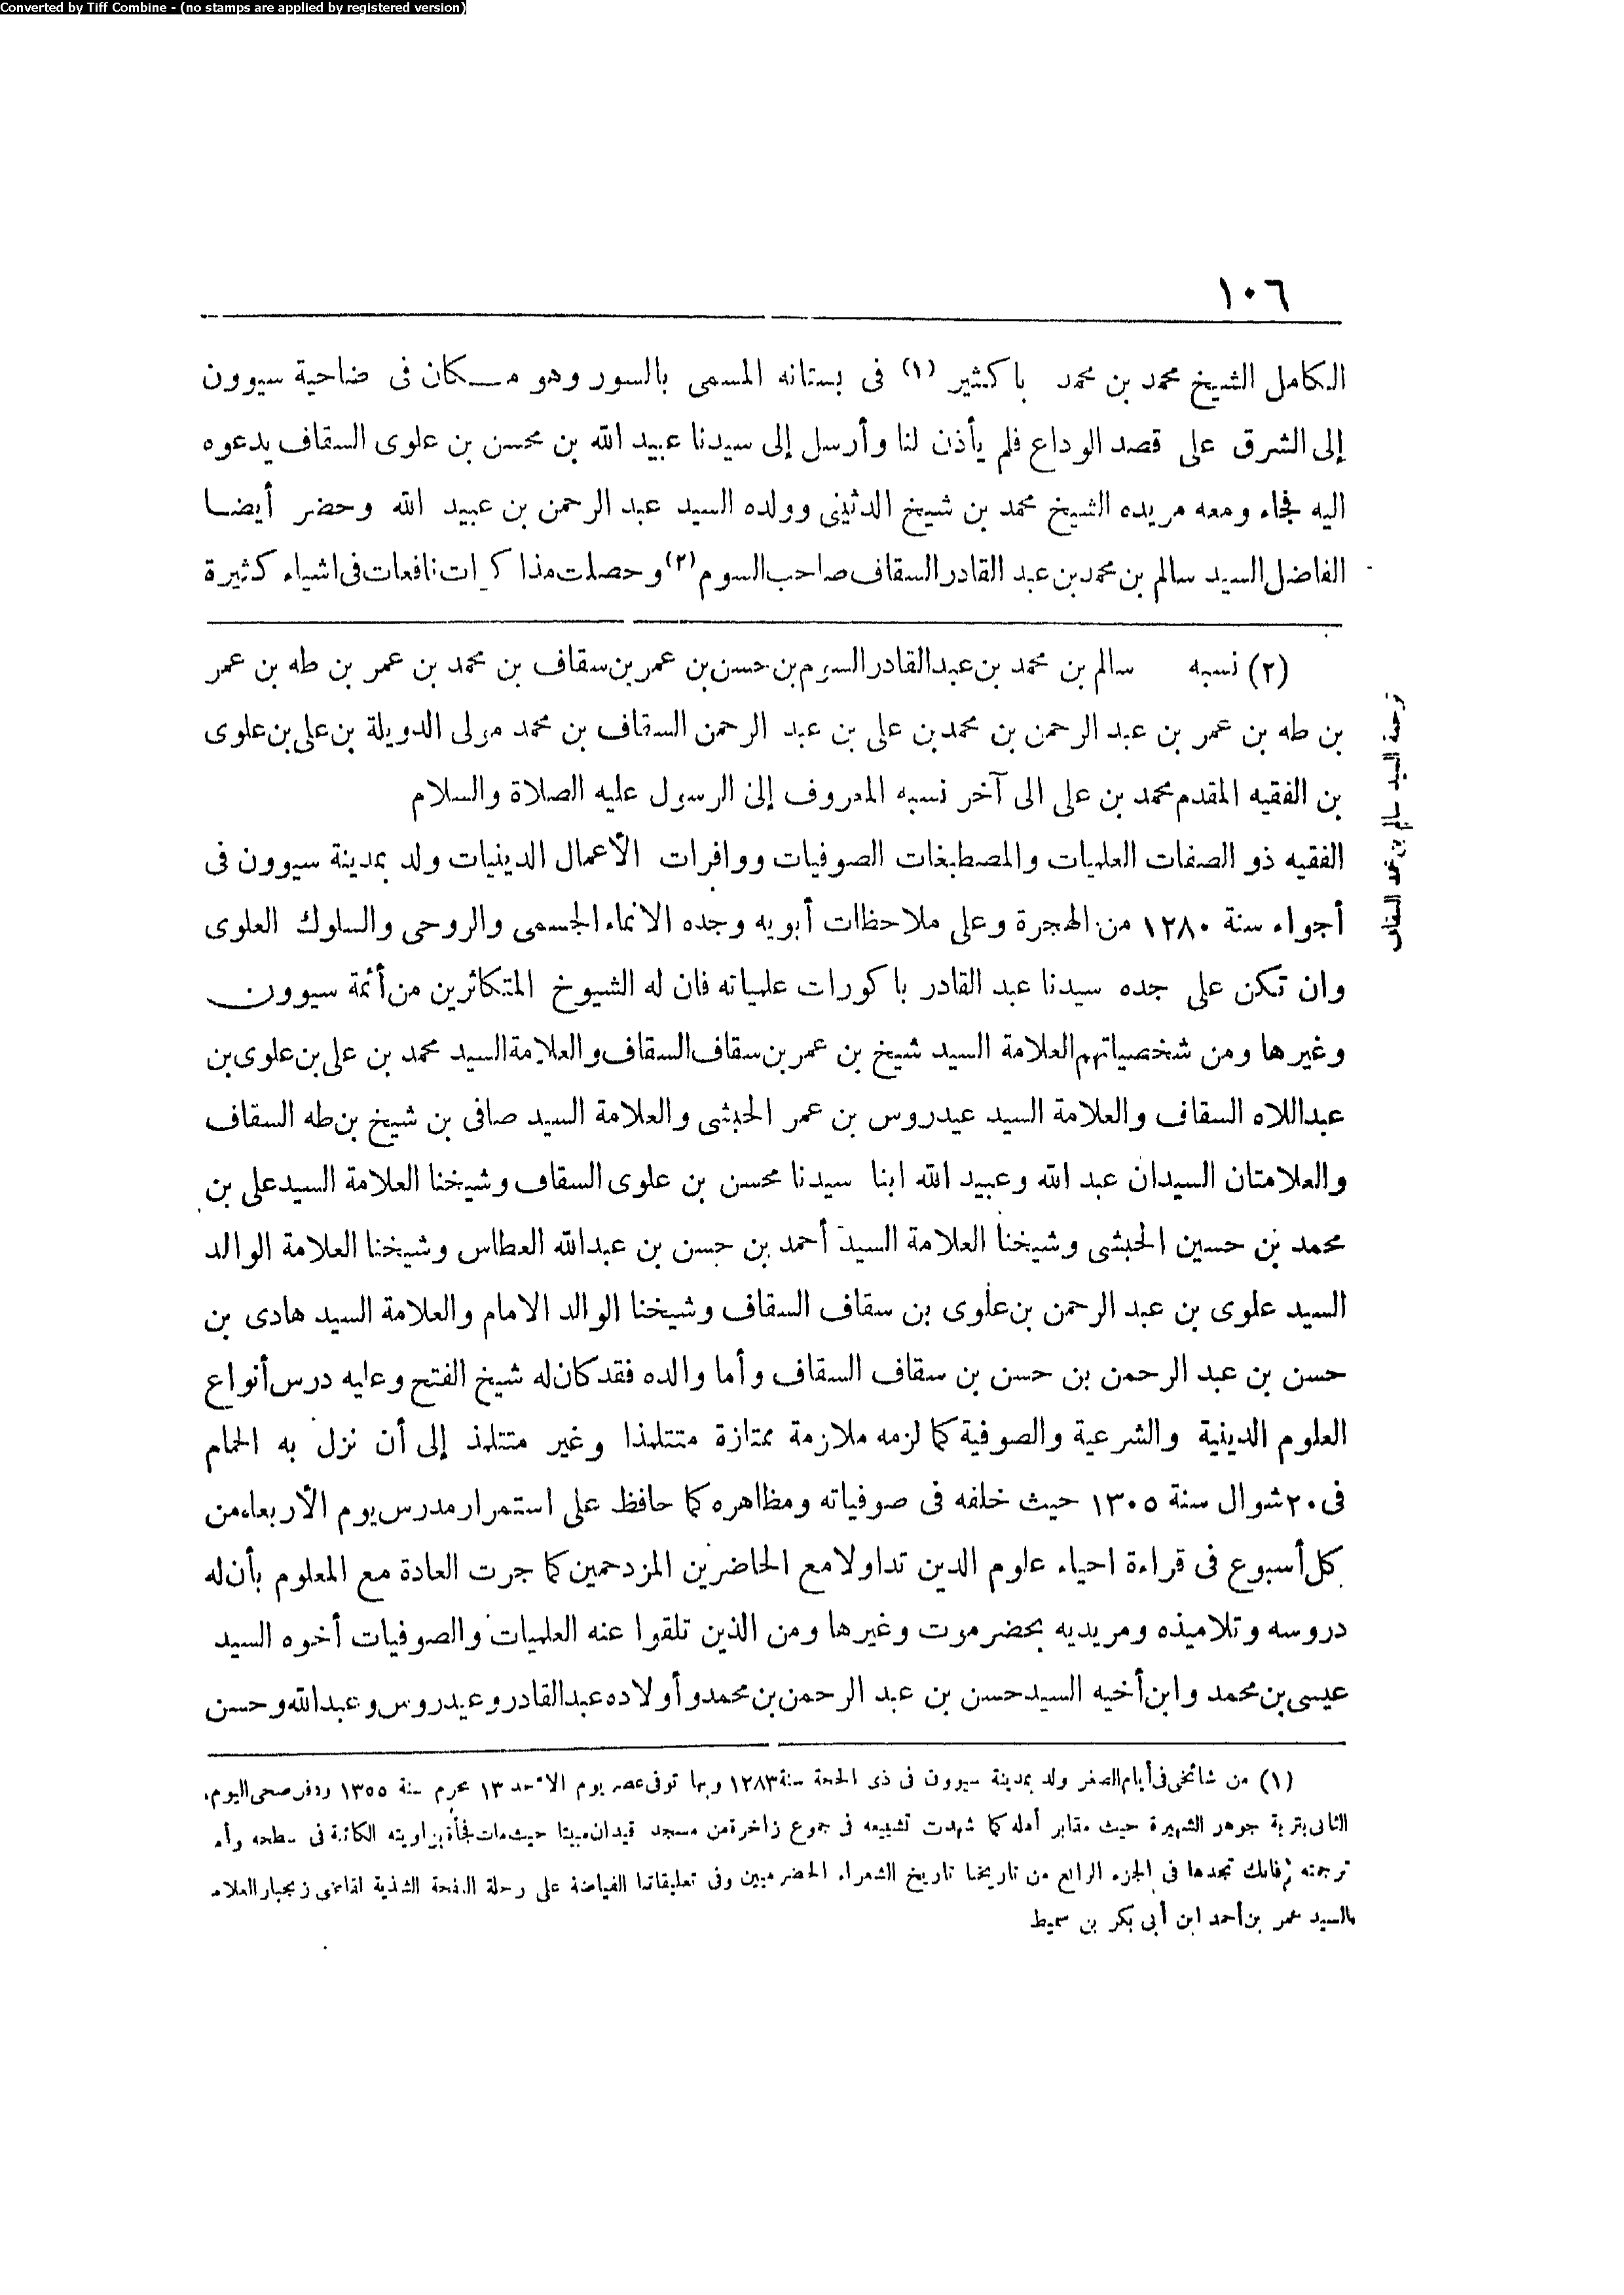 Converted by Tiff Combine - (no stamps are applied by registered version)
١٠٦
الكامل الشيخ محمد بن محمد باكثير (١) فى بستانه المسمى بالسور وهو مكان فى ضاحية سيوون
إلى الشرق على قصد الوداع فلم يأذن لنا وأرسل إلى سيدنا عبيد الله بن محسن بن علوى السقاف يدعوه
اليه فجاء ومعه مريده الشيخ محمد بن شيخ الدثينى وولده السيد عبد الرحمن بن عبيد الله وحضر أيضا
الفاضل السيد سالم بن محمد بن عبد القادر السقاف صاحب السوم (٢) وحصلت مذاكرات نافعات فى اشياء كثيرة
(٢) نسبه سالم بن محمد بن عبد القادر السوم بن حسن بن عمر بن سقاف بن محمد بن عمر بن طه بن عمر
بن طه بن عمر بن عبد الرحمن بن محمد بن على بن عبد الرحمن السقاف بن محمد مولى الدويلة بن على بن علوى
بن الفقيه المقدم محمد بن على الى آخر نسبه المعروف إلى الرسول عليه الصلاة والسلام
الفقيه ذو الصفات العلميات والمصطبغات الصوفيات ووافرات الأعمال الدينيات ولد بمدينة سيوون فى
أجواء سنة ١٢٨٠ من الهجرة وعلى ملاحظات أبويه وجده الانماء الجسمى والروحى والسلوك العلوى
وان تكن على جده سيدنا عبد القادر باكورات علمياته فان له الشيوخ المتكاثرين من أئمة سيوون
وغيرها ومن شخصياتهم العلامة السيد شيخ بن عمر بن سقاف السقاف والعلامة السيد محمد بن على بن علوى بن
عبداللاه السقاف والعلامة السيد عيدروس بن عمر الحبشى والعلامة السيد صافى بن شيخ بن طه السقاف
والعلامتان السيدان عبد الله وعبيد الله ابنا سيدنا محسن بن علوى السقاف وشيخنا العلامة السيد على بن
محمد بن حسين الحبشى وشيخنا العلامة السيد أحمد بن حسن بن عبدالله العطاس وشيخنا العلامة الوالد
السيد علوى بن عبد الرحمن بن علوى بن سقاف السقاف وشيخنا الوالد الامام والعلامة السيد هادى بن
حسن بن عبد الرحمن بن حسن بن سقاف السقاف وأما والده فقد كان له شيخ الفتح وعليه درس أنواع
العلوم الدينية والشرعية والصوفية كما لزمه ملازمة ممتازة متتلمذا وغير متتلمذ إلى أن نزل به الحمام
فى ٢٠ شوال سنة ١٣٠٥ حيث خلفه فى صوفياته ومظاهره كما حافظ على استمرار مدرس يوم الأربعاء من
كل أسبوع فى قراءة احياء علوم الدين تداولا مع الحاضرين المزدحمين كما جرت العادة مع المعلوم بأن له
دروسه وتلاميذه ومريديه بحضرموت وغيرها ومن الذين تلقوا عنه العلميات والصوفيات أخوه السيد
عيسى بن محمد وابن أخيه السيد حسن بن عبد الرحمن بن محمد وأولاده عبد القادر وعيدروس وعبد الله وحسن
ترجمة السيد سالم بن محمد السقاف
(١) من مشائخى فى أيام الصغر ولد بمدينة سيوون فى ذى الحجة سنة ١٢٨٣ وبها توفى عصر يوم الأحد ١٣ محرم سنة ١٣٥٥ ودفن صحى اليوم
الثانى بتربة جوهر الشهيرة حيث مقابر أهله كما شهدت تشييعه فى جموع زاخرة من مسجد قيدان حيث مات فجأة بزاويته الكائنة فى سطحه وأما
ترجمته فانك تجدها فى الجزء الرابع من تاريخنا تاريخ الشعراء الحضرميين وفى تعليقاتنا الفياضة على رحلة النفحة الشذية لقاضى زنجبار العلامة
السيد عمر بن أحمد ابن أبى بكر بن سميط